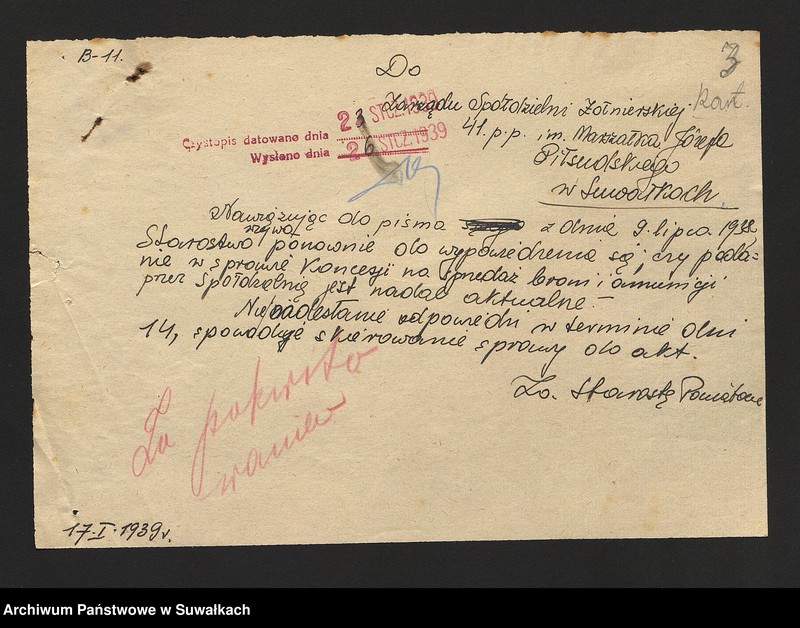 B-11.
3
Do
Zarządu Spółdzielni Żołnierskiej
41. p.p. im. Marszałka Józefa
Piłsudskiego
w Suwałkach
Czystopis datowano dnia 23 STCZ. 1939
Wysłano dnia 26 STCZ. 1939
Nawiązując do pisma z dnia 9 lipca 1938
Starostwo wzywa ponownie do wypowiedzenia się, czy poda-
nie w sprawie koncesji na sprzedaż broni i amunicji
przez Spółdzielnię jest nadal aktualne.-
Nie nadesłanie odpowiedzi w terminie dni
14, spowoduje skierowanie sprawy do akt.
Za Starostę Powiatowe
Za pokwito
waniem
17.I.1939r.
Archiwum Państwowe w Suwałkach